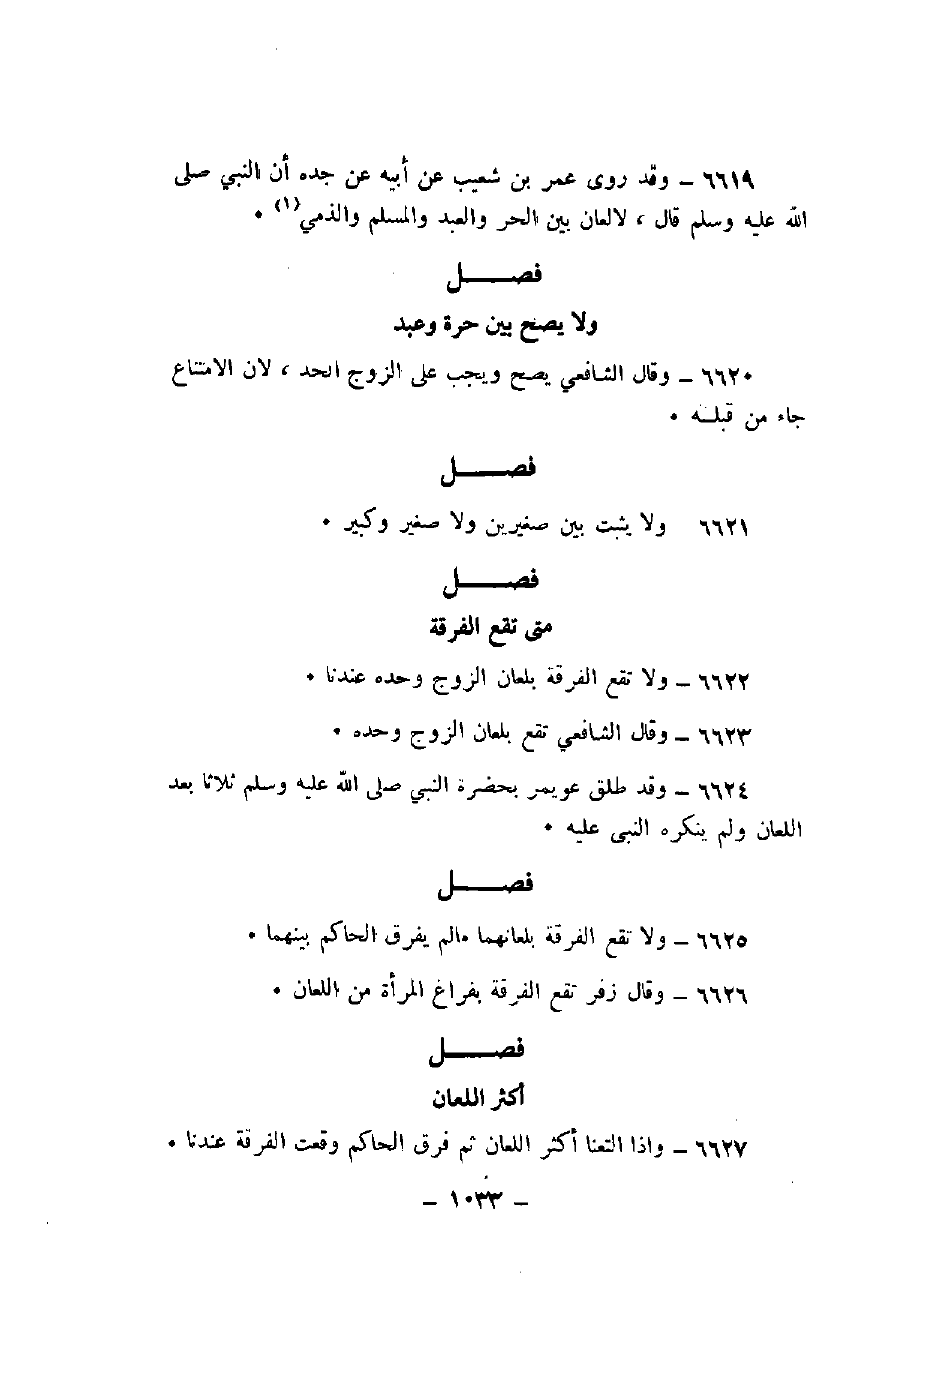 ٦٦١٩ ــ وقد روى عمر بن شعيب عن أبيه عن جده أن النبي صلى
الله عليه وسلم قال ، لالعان بين الحر والعبد والمسلم والذمي(١) ٠
فصـــــل
ولا يصح بين حرة وعبد
٦٦٢٠ ــ وقال الشافعي يصح ويجب على الزوج الحد ، لان الامتناع
جاء من قبلـه ٠
فصـــــل
٦٦٢١ ولا يثبت بين صغيرين ولا صغير وكبير ٠
فصـــــل
متى تقع الفرقة
٦٦٢٢ ــ ولا تقع الفرقة بلعان الزوج وحده عندنا ٠
٦٦٢٣ ــ وقال الشافعي تقع بلعان الزوج وحده ٠
٦٦٢٤ ــ وقد طلق عويمر بحضرة النبي صلى الله عليه وسلم ثلاثا بعد
اللعان ولم ينكره النبى عليه ٠
فصـــــل
٦٦٢٥ ــ ولا تقع الفرقة بلعانهما مالم يفرق الحاكم بينهما ٠
٦٦٢٦ ــ وقال زفر تقع الفرقة بفراغ المرأة من اللعان ٠
فصـــــل
أكثر اللعان
٦٦٢٧ ــ واذا التعنا أكثر اللعان ثم فرق الحاكم وقعت الفرقة عندنا ٠
ــ ١٠٣٣ ــ